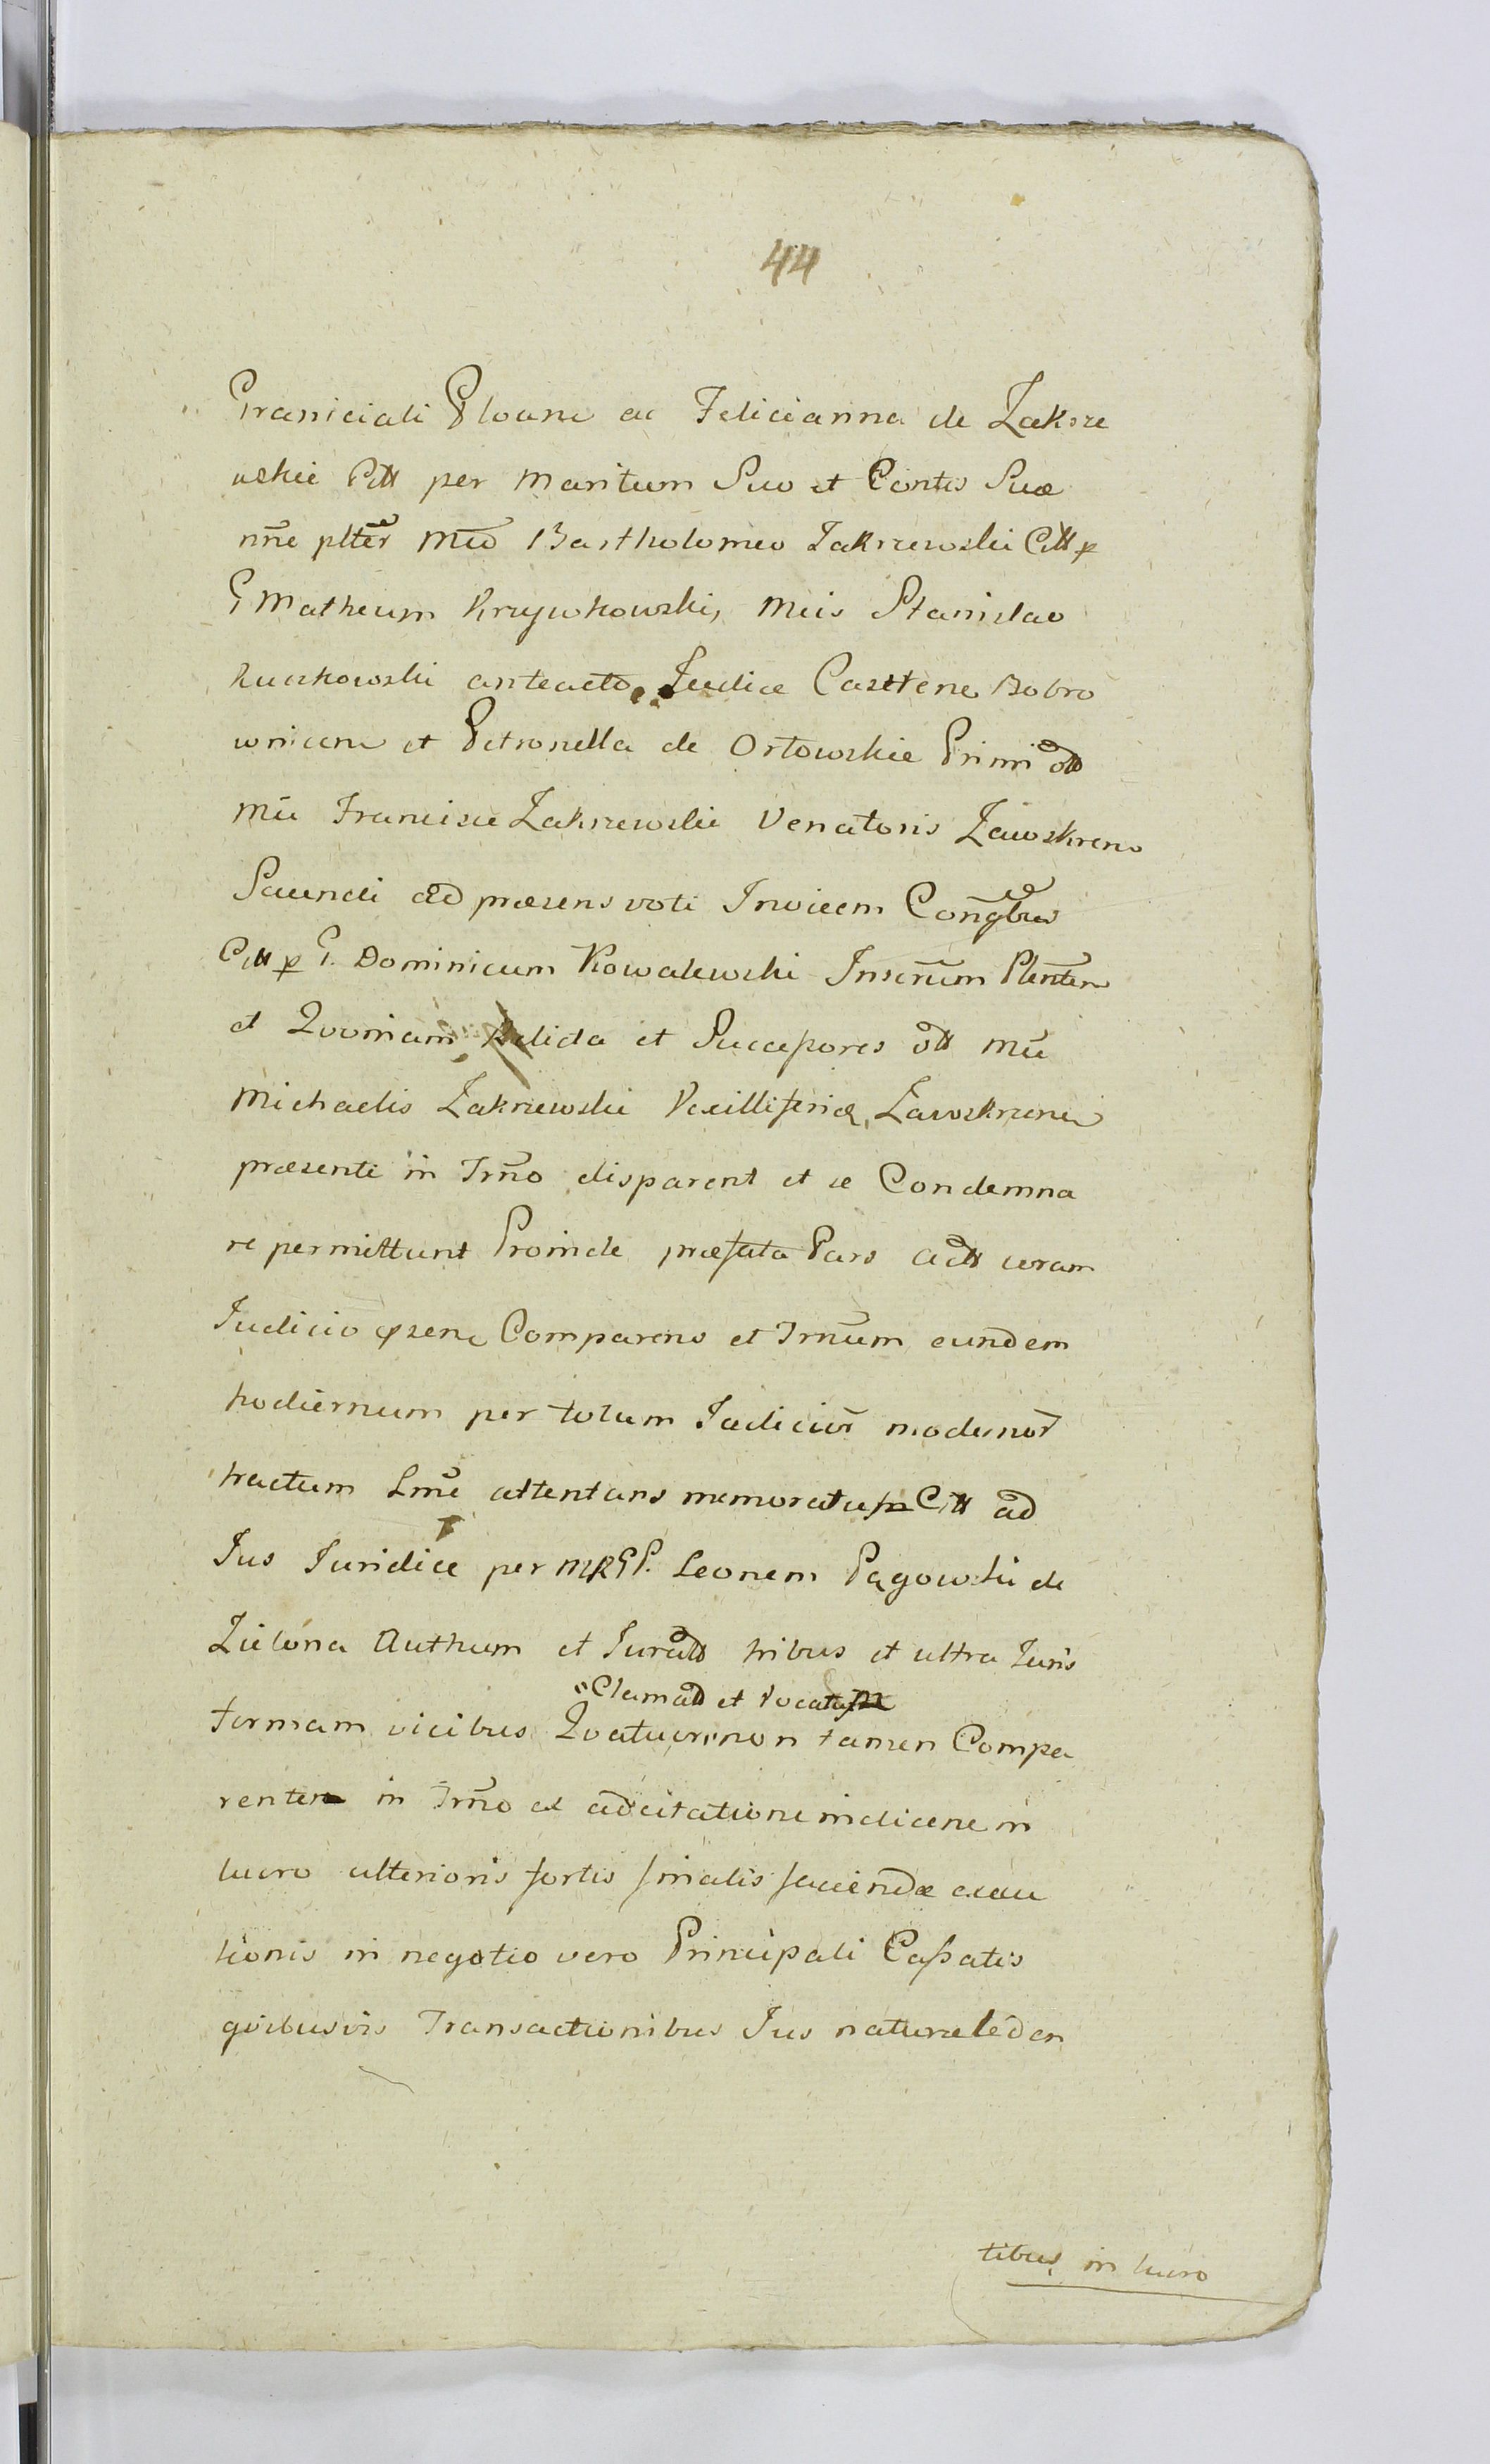 44
Graniciali Ploane ac Felicianna de Zakrze
wskie Citt per maritum Suo et Contis Suæ
nn̄e pltēr Mco Bartholomeo Zakrzewski Citt p
G Matheum Krzywkowski, Mcis Stanislao
Ruszkowski anteacto Judice Casttene Bobro
wnicen et Petronella de Orłowskie Primi olld
Mci Francisci Zakrzewski Venatoris Zawskren
Secundi ad præsens voti Invicem Con̄gbus
Citt p G. Dominicum Kowalewski Inscrūm Plenten
et Qvoniam Relicta et Successores oltt Mci
Michaelis Zakrzewski Vexilliferidæ Zawskrzenen
præsente in Trn̄o disparent et se Condemna
re permittunt Proinde præfata Pars actt coram
Judicio præsen Comparens et Trn̄um eundem
hodiernum per totum Judicior modernor
tractum Lm̄e attentans memoratam Citt ad
Jus Juridice per MRGP. Leonem Pągowski de
Zielona Authum et Juratt tribus et ultra Juris
"Clamatt et Vocatam
formam vicibus Qvatuor "non tamen Compa
rentem in Trn̄o ex adcitatione indicen in
lucro ulterioris fortis finalis faciendæ execu
tionis in negotio vero Principali Cassatis
qvibusvis Transactionibus Jus naturæ lædan
tibus in lucro